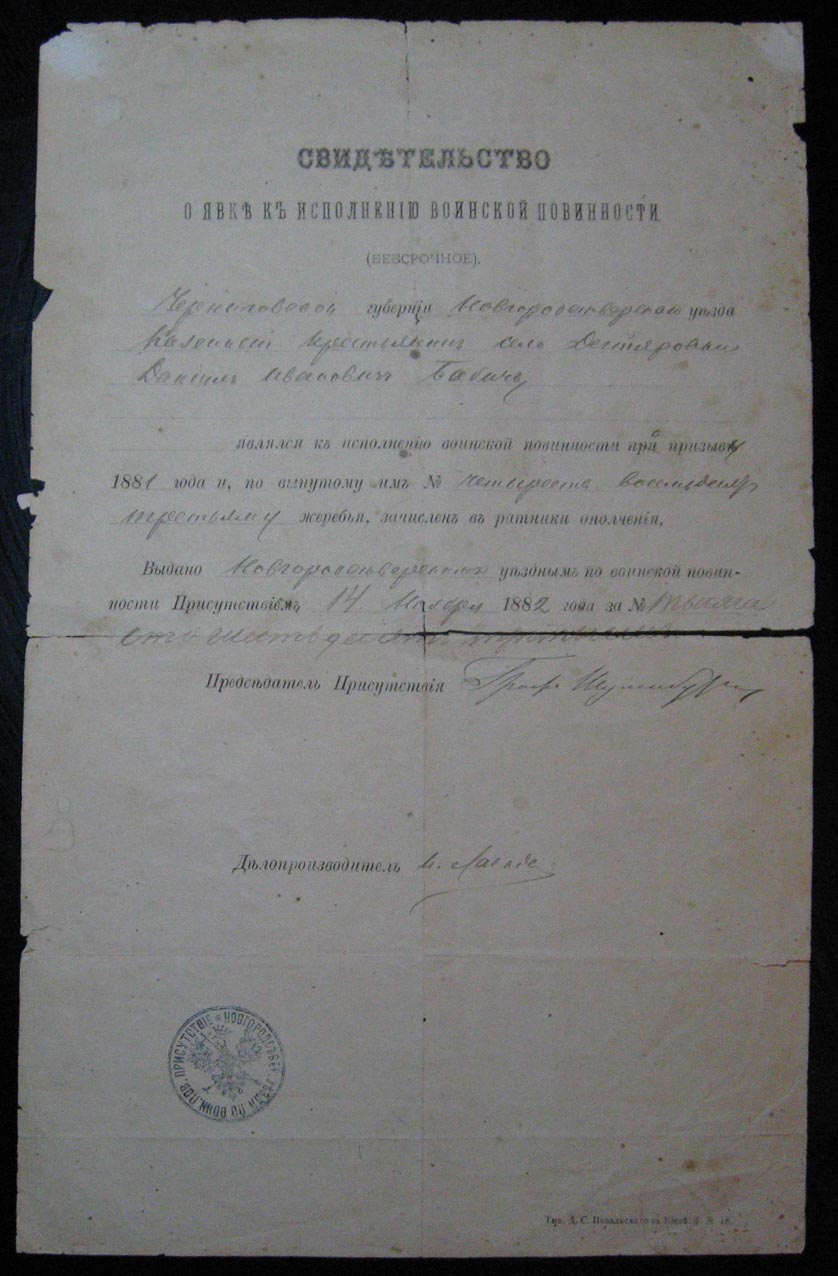 СВИДѢТЕЛЬСТВО
О ЯВКѢ КЪ ИСПОЛНЕНІЮ ВОИНСКОЙ ПОВИННОСТИ.
(БЕЗСРОЧНОЕ).
Черниговской губерніи Новгородсѣверскаго уѣзда
крестьянинъ села
Даніилъ Ивановичъ Бабичъ
являлся къ исполненію воинской повинности при призывѣ
1881 года и, по вынутому имъ № четыреста восемьдесятъ
третьему жеребья, зачисленъ въ ратники ополченія.
Выдано Новгородсѣверскимъ уѣзднымъ по воинской повин-
ности Присутствіемъ 14 Ноября 1882 года за № тысяча
сто шестьдесятъ
Предсѣдатель Присутствія Графъ
Дѣлопроизводитель
НОВГОРОДСѢВЕР. УѢЗД. ПО ВОИН. ПОВ. ПРИСУТСТВІЕ
Тип. Д. С. Повальскаго въ Кіевѣ. ф. № 46.